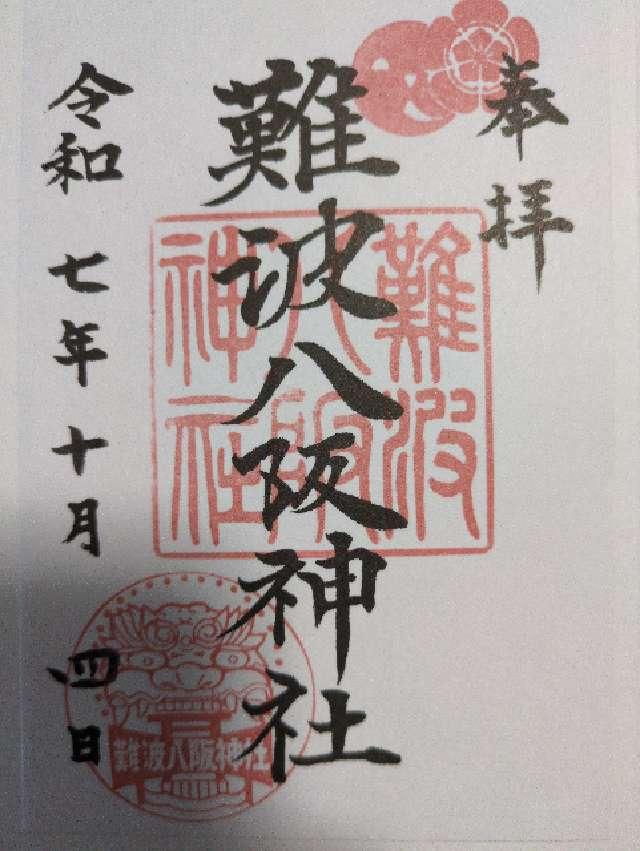 奉拝
難波八阪神社
難波八阪神社
令和七年十月四日
難波八阪神社